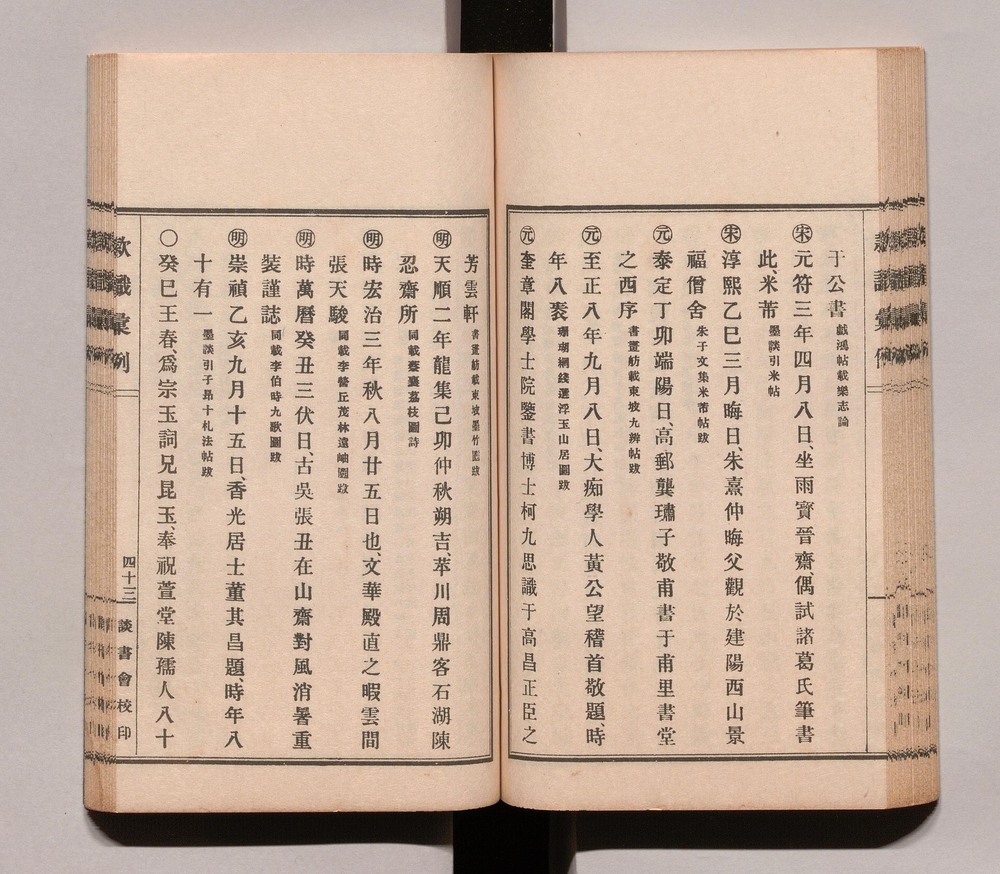 于公書 戲鴻帖載樂志論
㊁宋元符三年四月八日、坐雨寶晉齋、偶試諸葛氏筆書
此、米芾 墨談引米帖
宋淳熙乙巳三月晦日朱熹仲晦父觀於建陽西山景
福僧舍 朱子文集米芾帖跋
元泰定丁卯端陽日、高郵龔璛子敬甫書于甫里書堂
之西序 書畫舫載東坡九辨帖跋
元至正八年九月八日、大痴學人黃公望稽首敬題、時
年八袠 珊瑚網錢選浮玉山居圖跋
元奎章閣學士院鑒書博士柯九思識于高昌正臣之
芳雲軒 書畫舫載東坡墨竹圖跋
明天順二年龍集己卯仲秋朔吉、莘川周鼎客石湖陳
忍齋所 同載蔡襄荔枝圖詩
明時宏治三年秋八月廿五日也、文華殿直之暇雲間
張天駿 同載李營丘茂林遠岫圖跋
明時萬曆癸丑三伏日、古吳張丑在山齋對風消暑重
裝謹誌 同載李伯時九歌圖跋
明崇禎乙亥九月十五日、香光居士董其昌題、時年八
十有一 墨談引子昂十札法帖跋
〇癸巳王春、爲宗玉詞兄昆玉、奉祝萱堂陳孺人八十
款識彙例
四十三
談書會校印